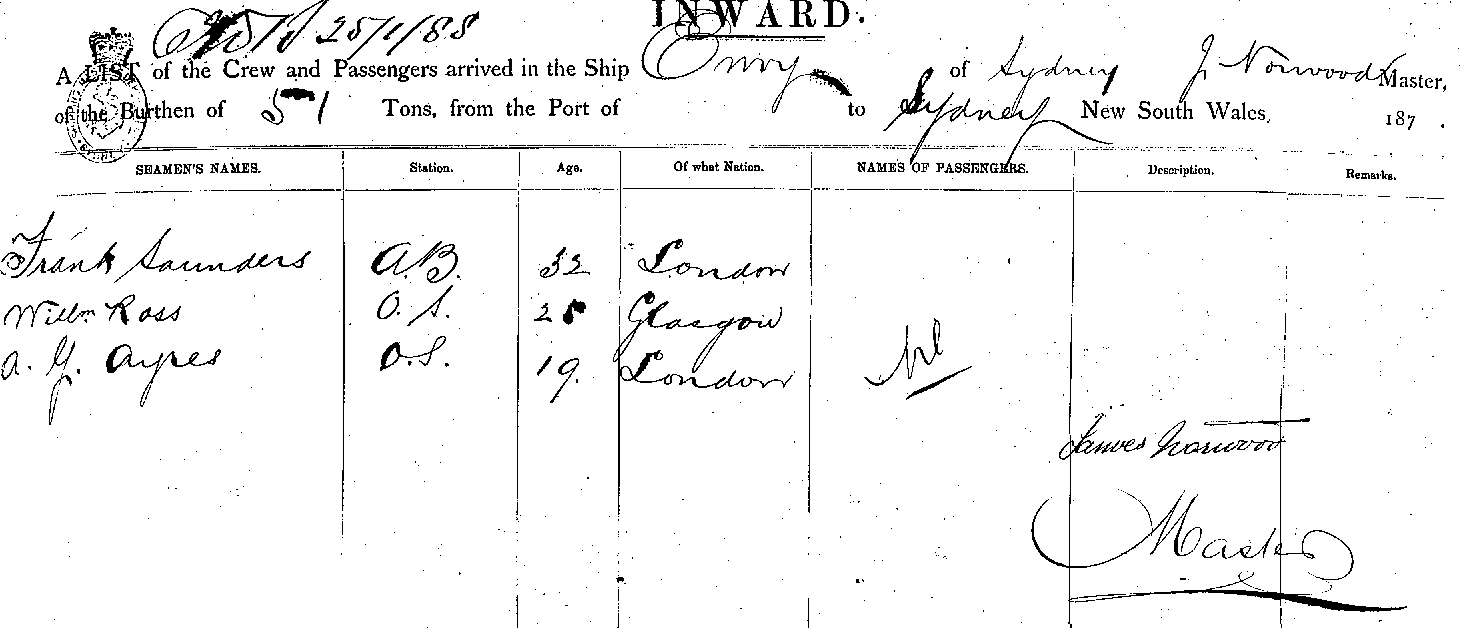 INWARD.
25/1/88
A LIST of the Crew and Passengers arrived in the Ship Envy of Sydney J. Norwood Master,
of the Burthen of 51 Tons, from the Port of to Sydney New South Wales, 187 .
SEAMEN'S NAMES. Station. Age. Of what Nation. NAMES OF PASSENGERS. Description. Remarks.
Frank Saunders A.B. 32 London
Willm Ross O.S. 25 Glasgow
A. Y. Ayres O.S. 19. London Nil
James Norwood
Master